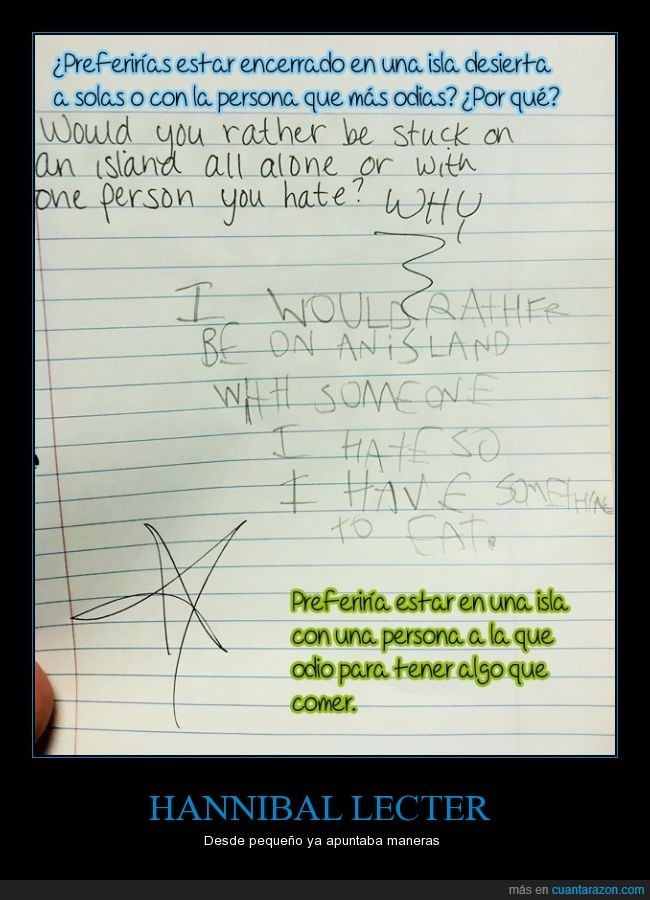 ¿Preferirías estar encerrado en una isla desierta
a solas o con la persona que más odias? ¿Por qué?
Would you rather be stuck on
an island all alone or with
one person you hate? WHY
I WOULD RATHER
BE ON AN ISLAND
WITH SOMEONE
I HATE SO
I HAVE SOMETHING
TO EAT.
Preferiría estar en una isla
con una persona a la que
odio para tener algo que
comer.
HANNIBAL LECTER
Desde pequeño ya apuntaba maneras
más en cuantarazon.com